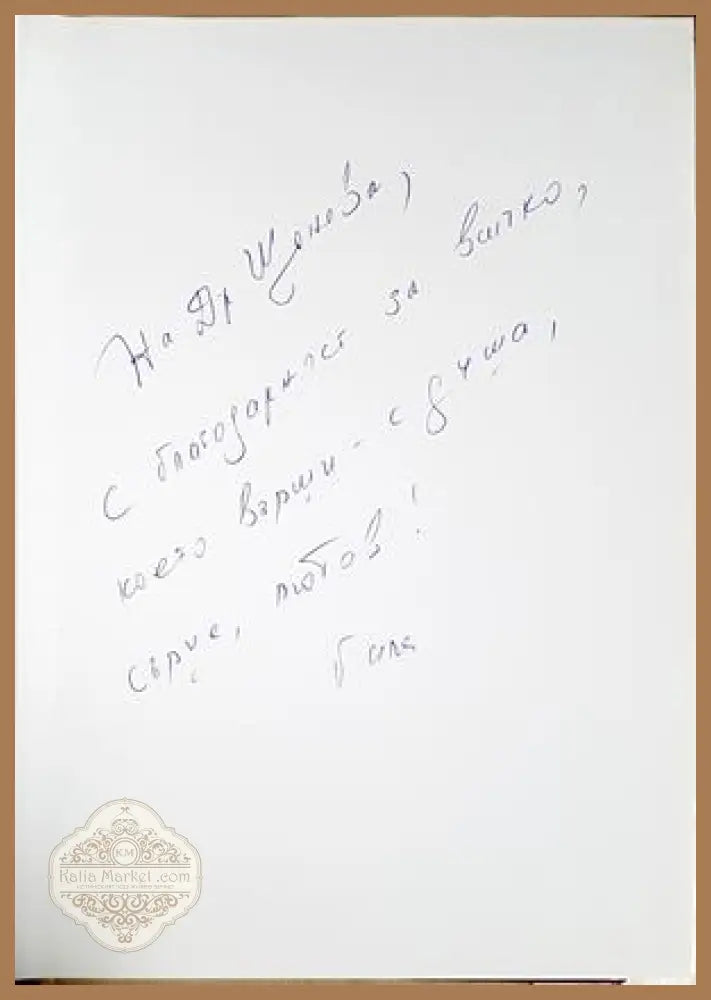 На Др Щонева,
с благодарност за вичко,
което върши - с душа,
сърце, любов!
Била
KM
Kalia Market .com